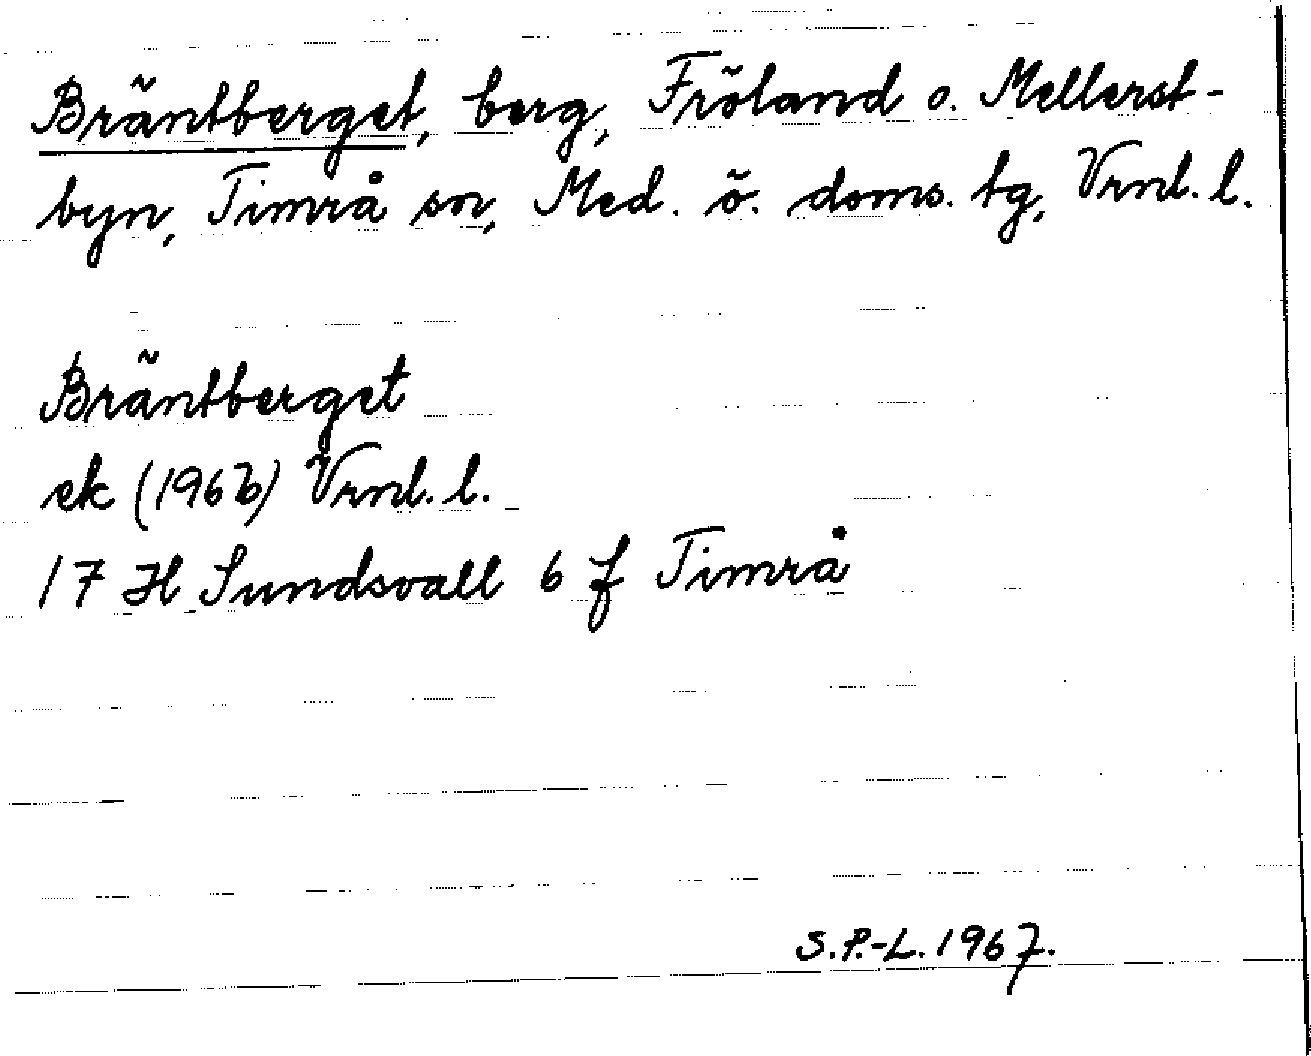 Bräntberget, berg, Fröland o. Mellerst-
byn, Timrå sn, Med. ö. doms. tg, Vrnl. l.
Bräntberget
ek (1966) Vrnl. l.
17 H Sundsvall 6 f Timrå
S.P.-L. 1967.